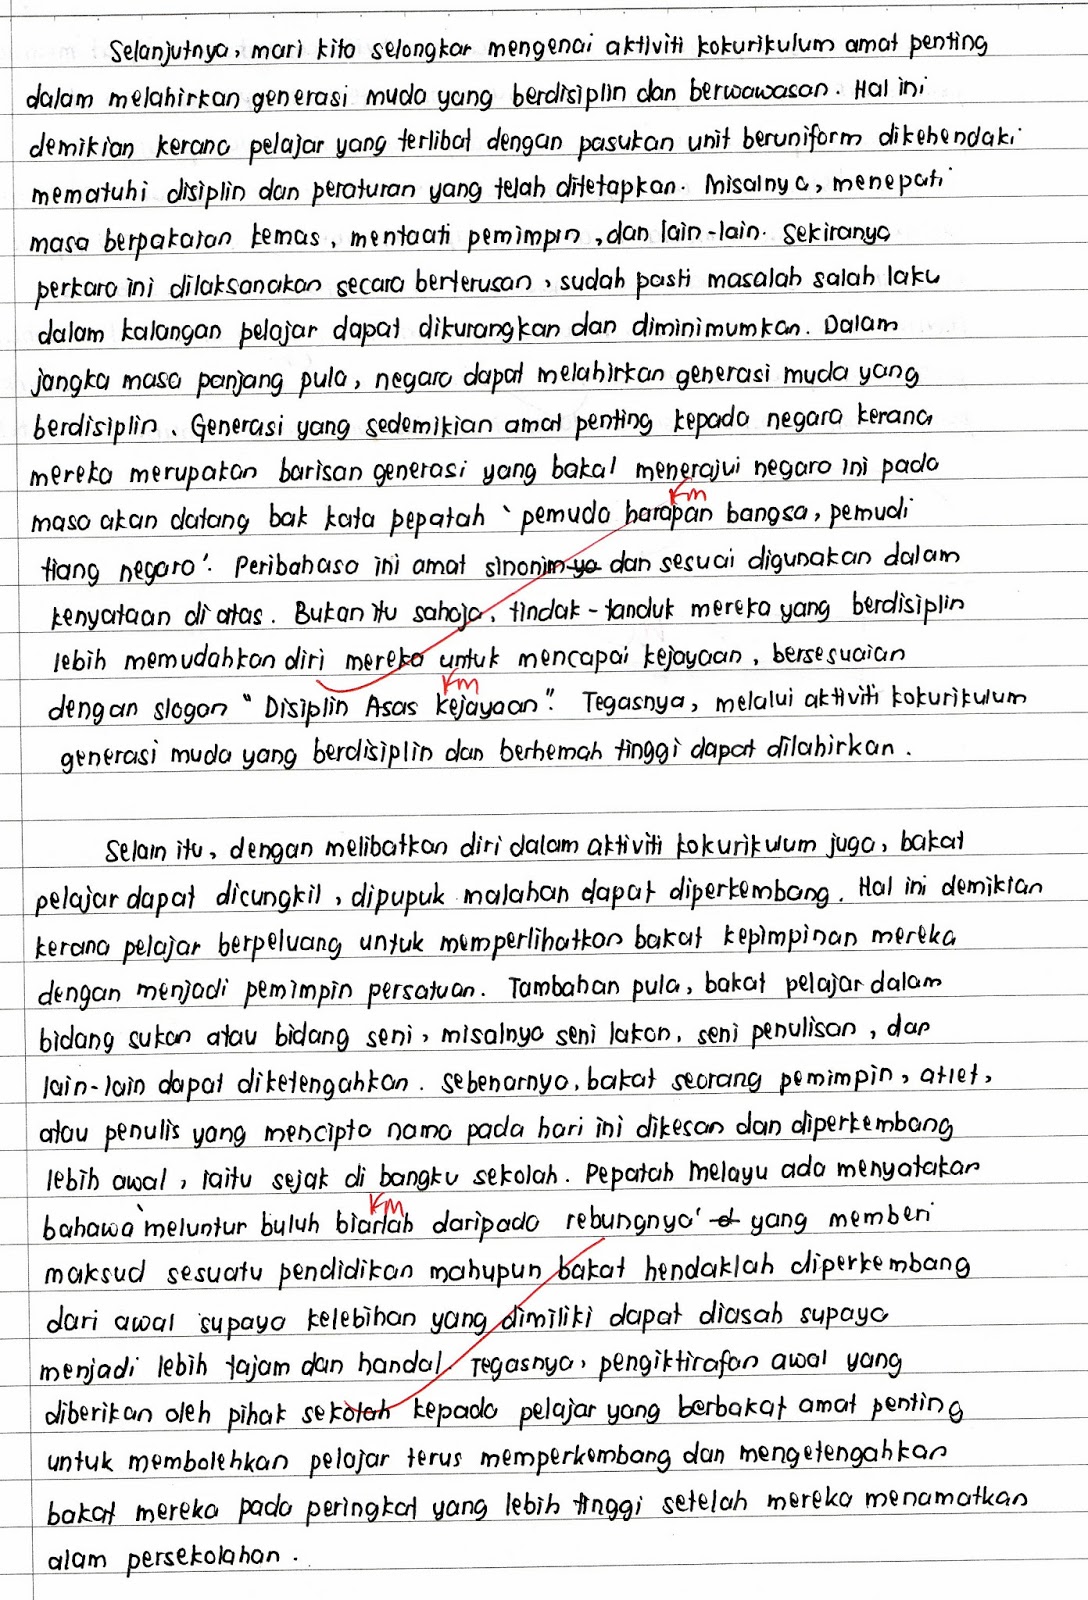 Selanjutnya, mari kita selongkar mengenai aktiviti kokurikulum amat penting
dalam melahirkan generasi muda yang berdisiplin dan berwawasan. Hal ini
demikian kerana pelajar yang terlibat dengan pasukan unit beruniform dikehendaki
mematuhi disiplin dan peraturan yang telah ditetapkan. Misalnya, menepati
masa berpakaian kemas, mentaati pemimpin, dan lain-lain. Sekiranya
perkara ini dilaksanakan secara berterusan, sudah pasti masalah salah laku
dalam kalangan pelajar dapat dikurangkan dan diminimumkan. Dalam
jangka masa panjang pula, negara dapat melahirkan generasi muda yang
berdisiplin. Generasi yang sedemikian amat penting kepada negara kerana
mereka merupakan barisan generasi yang bakal menerajui negara ini pada
km
masa akan datang bak kata pepatah 'pemuda harapan bangsa, pemudi
tiang negara'. Peribahasa ini amat sinonim ya dan sesuai digunakan dalam
kenyataan di atas. Bukan itu sahaja, tindak-tanduk mereka yang berdisiplin
lebih memudahkan diri mereka untuk mencapai kejayaan, bersesuaian
km
dengan slogan "Disiplin Asas kejayaan". Tegasnya, melalui aktiviti kokurikulum
generasi muda yang berdisiplin dan berhemah tinggi dapat dilahirkan.
Selain itu, dengan melibatkan diri dalam aktiviti kokurikulum juga, bakat
pelajar dapat dicungkil, dipupuk malahan dapat diperkembang. Hal ini demikian
kerana pelajar berpeluang untuk memperlihatkan bakat kepimpinan mereka
dengan menjadi pemimpin persatuan. Tambahan pula, bakat pelajar dalam
bidang sukan atau bidang seni, misalnya seni lakon, seni penulisan, dan
lain-lain dapat diketengahkan. Sebenarnya, bakat seorang pemimpin, atlet,
atau penulis yang mencipta nama pada hari ini dikesan dan diperkembang
lebih awal, iaitu sejak di bangku sekolah. Pepatah Melayu ada menyatakan
km
bahawa 'meluntur buluh biarlah daripada rebungnya' yang memberi
maksud sesuatu pendidikan mahupun bakat hendaklah diperkembang
dari awal supaya kelebihan yang dimiliki dapat diasah supaya
menjadi lebih tajam dan handal. Tegasnya, pengiktirafan awal yang
diberikan oleh pihak sekolah kepada pelajar yang berbakat amat penting
untuk membolehkan pelajar terus memperkembang dan mengetengahkan
bakat mereka pada peringkat yang lebih tinggi setelah mereka menamatkan
alam persekolahan.